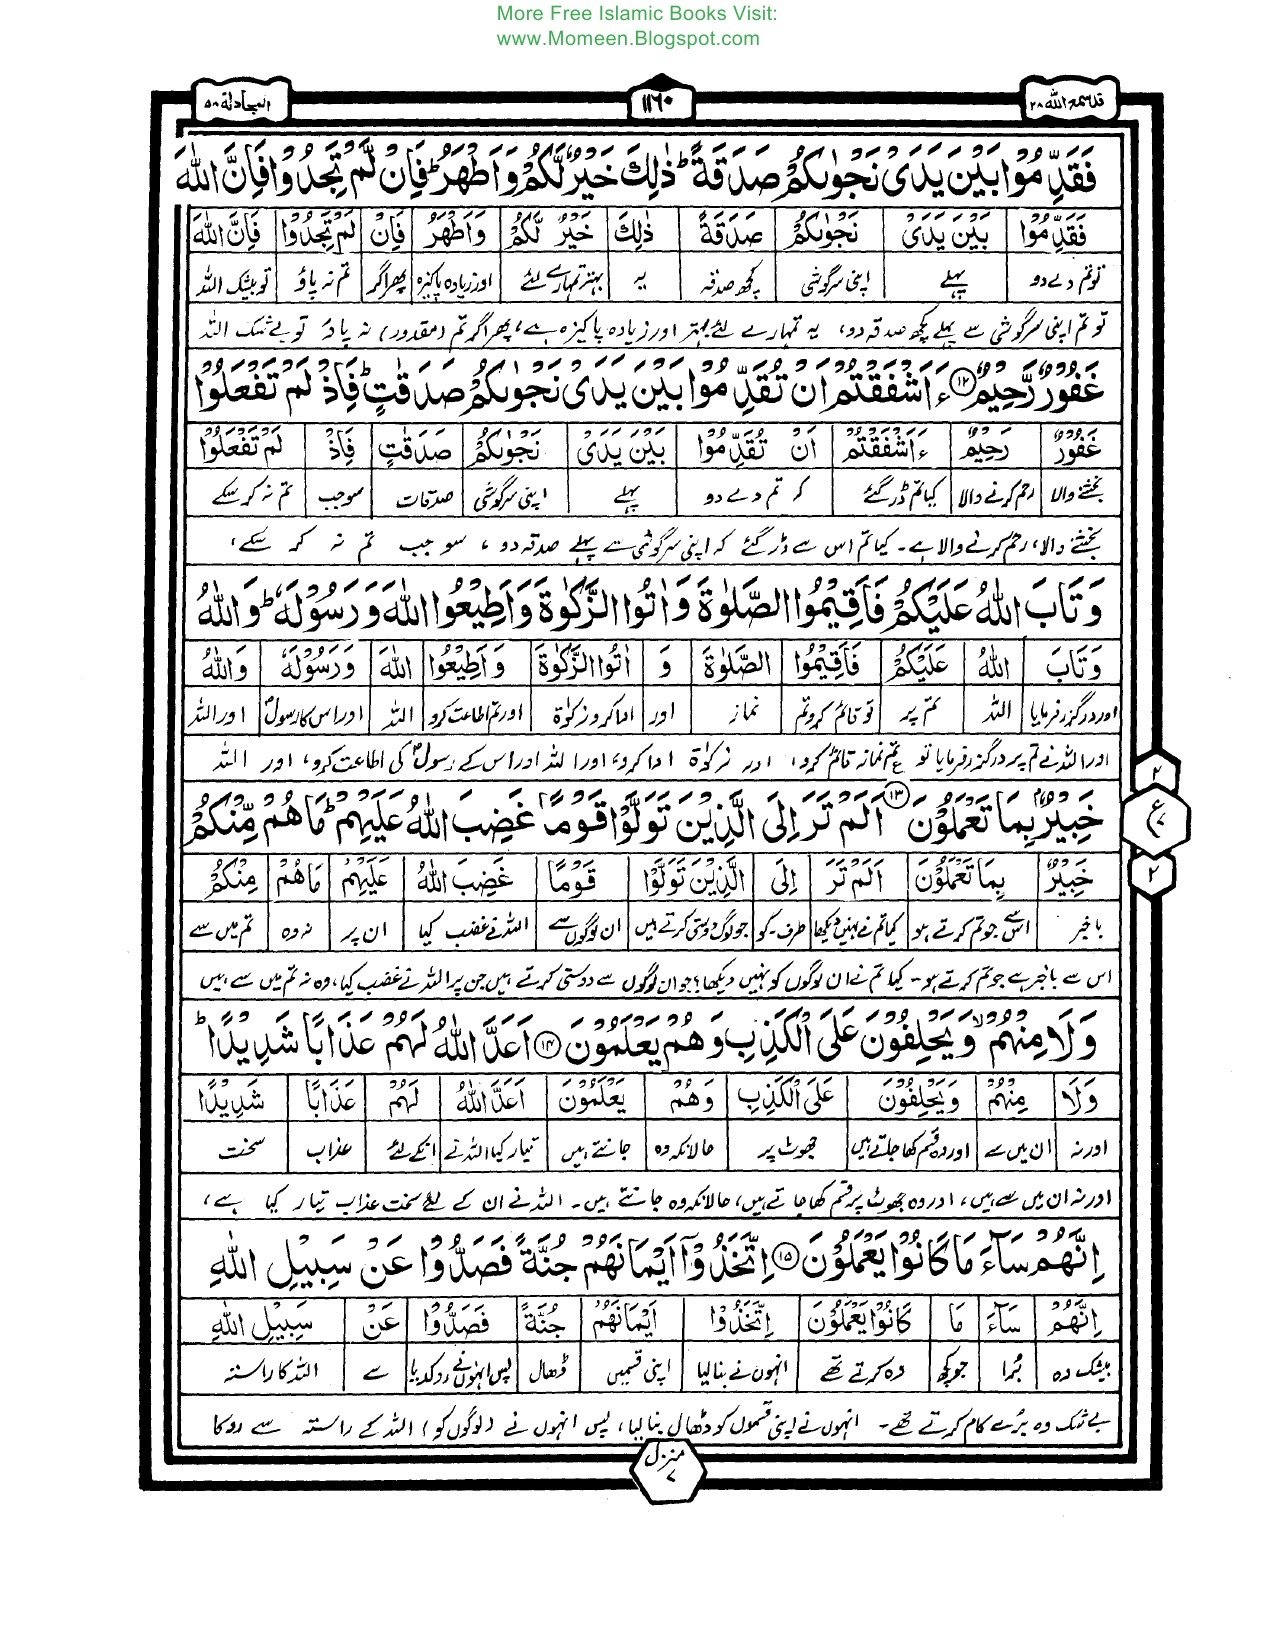 More Free Islamic Books Visit:
www.Momeen.Blogspot.com
قد سمع الله ٢٨
١١٦٠
المجادلة ٥٨
فَقَدِّمُوْا بَيْنَ يَدَىْ نَجْوٰىكُمْ صَدَقَةً ؕ ذٰلِكَ خَيْرٌ لَّكُمْ وَاَطْهَرُ ؕ فَاِنْ لَّمْ تَجِدُوْا فَاِنَّ اللّٰهَ
فَقَدِّمُوْا بَيْنَ يَدَىْ نَجْوٰىكُمْ صَدَقَةً ذٰلِكَ خَيْرٌ لَّكُمْ وَاَطْهَرُ فَاِنْ لَمْ تَجِدُوْا فَاِنَّ اللّٰهَ
تو تم دے دو پہلے اپنی سرگوشی کچھ صدقہ یہ بہتر تمہارے لئے اور زیادہ پاکیزہ پھر اگر تم نہ پاؤ تو بیشک اللہ
تو تم اپنی سرگوشی سے پہلے کچھ صدقہ دو، یہ تمہارے لئے بہتر اور زیادہ پاکیزہ ہے، پھر اگر تم (مقدور) نہ پاؤ تو بے شک اللہ
غَفُوْرٌ رَّحِيْمٌ ١٢ ءَاَشْفَقْتُمْ اَنْ تُقَدِّمُوْا بَيْنَ يَدَىْ نَجْوٰىكُمْ صَدَقٰتٍ ؕ فَاِذْ لَمْ تَفْعَلُوْا
غَفُوْرٌ رَحِيْمٌ ءَاَشْفَقْتُمْ اَنْ تُقَدِّمُوْا بَيْنَ يَدَىْ نَجْوٰىكُمْ صَدَقٰتٍ فَاِذْ لَمْ تَفْعَلُوْا
بخشنے والا رحم کرنے والا کیا تم ڈر گئے کہ تم دے دو پہلے اپنی سرگوشی صدقات سو جب تم نہ کر سکے
بخشنے والا، رحم کرنے والا ہے۔ کیا تم اس سے ڈر گئے کہ اپنی سرگوشی سے پہلے صدقہ دو، سو جب تم نہ کر سکے،
وَتَابَ اللّٰهُ عَلَيْكُمْ فَاَقِيْمُوا الصَّلٰوةَ وَاٰتُوا الزَّكٰوةَ وَاَطِيْعُوا اللّٰهَ وَرَسُوْلَهٗ ؕ وَاللّٰهُ
وَتَابَ اللّٰهُ عَلَيْكُمْ فَاَقِيْمُوا الصَّلٰوةَ وَ اٰتُوا الزَّكٰوةَ وَاَطِيْعُوا اللّٰهَ وَرَسُوْلَهٗ وَاللّٰهُ
اور درگزر فرمایا اللہ تم پر تو قائم کرو تم نماز اور ادا کرو زکوٰۃ اور تم اطاعت کرو اللہ اور اس کا رسولؐ اور اللہ
اور اللہ نے تم پر درگزر فرمایا تو تم نماز قائم کرو، اور زکوٰۃ ادا کرو، اور اللہ اور اس کے رسولؐ کی اطاعت کرو، اور اللہ
خَبِيْرٌۢ بِمَا تَعْمَلُوْنَ ١٣ اَلَمْ تَرَ اِلَى الَّذِيْنَ تَوَلَّوْا قَوْمًا غَضِبَ اللّٰهُ عَلَيْهِمْ ؕ مَا هُمْ مِّنْكُمْ
٢
ع
٧
٢
خَبِيْرٌ بِمَا تَعْمَلُوْنَ اَلَمْ تَرَ اِلَى الَّذِيْنَ تَوَلَّوْا قَوْمًا غَضِبَ اللّٰهُ عَلَيْهِمْ مَا هُمْ مِنْكُمْ
باخبر اس سے جو تم کرتے ہو کیا تم نے نہیں دیکھا طرف۔کو جو لوگ دوستی کرتے ہیں ان لوگوں سے اللہ نے غضب کیا ان پر نہ وہ تم میں سے
اس سے باخبر ہے جو تم کرتے ہو۔ کیا تم نے ان لوگوں کو نہیں دیکھا؟ جو ان لوگوں سے دوستی کرتے ہیں جن پر اللہ نے غضب کیا، وہ نہ تم میں سے ہیں
وَلَا مِنْهُمْ ۙ وَيَحْلِفُوْنَ عَلَى الْكَذِبِ وَهُمْ يَعْلَمُوْنَ ١٤ اَعَدَّ اللّٰهُ لَهُمْ عَذَابًا شَدِيْدًا ؕ
وَلَا مِنْهُمْ وَيَحْلِفُوْنَ عَلَى الْكَذِبِ وَهُمْ يَعْلَمُوْنَ اَعَدَّ اللّٰهُ لَهُمْ عَذَابًا شَدِيْدًا
اور نہ ان میں سے اور وہ قسم کھا جاتے ہیں جھوٹ پر حالانکہ وہ جانتے ہیں تیار کیا اللہ نے انکے لئے عذاب سخت
اور نہ ان میں سے ہیں، اور وہ جھوٹ پر قسم کھا جاتے ہیں، حالانکہ وہ جانتے ہیں۔ اللہ نے ان کے لئے سخت عذاب تیار کیا ہے،
اِنَّهُمْ سَآءَ مَا كَانُوْا يَعْمَلُوْنَ ١٥ اِتَّخَذُوْٓا اَيْمَانَهُمْ جُنَّةً فَصَدُّوْا عَنْ سَبِيْلِ اللّٰهِ
اِنَّهُمْ سَآءَ مَا كَانُوْا يَعْمَلُوْنَ اِتَّخَذُوْا اَيْمَانَهُمْ جُنَّةً فَصَدُّوْا عَنْ سَبِيْلِ اللّٰهِ
بیشک وہ بُرا جو کچھ وہ کرتے تھے انہوں نے بنا لیا اپنی قسمیں ڈھال پس انہوں نے روک دیا سے اللہ کا راستہ
بے شک وہ بُرے کام کرتے تھے۔ انہوں نے اپنی قسموں کو ڈھال بنا لیا، پس انہوں نے (لوگوں کو) اللہ کے راستہ سے روکا
منزل
٧